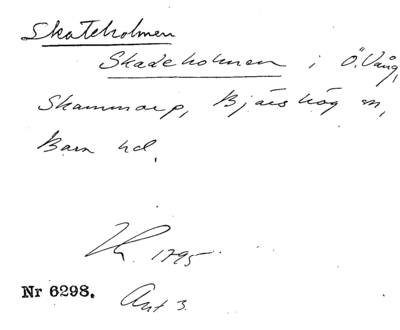 Skateholmen
Skadeholmen i Ö. Vång,
Skammarp, Bjäreshög sn,
Bara hd.
1795
Nr 6298. Akt 3.